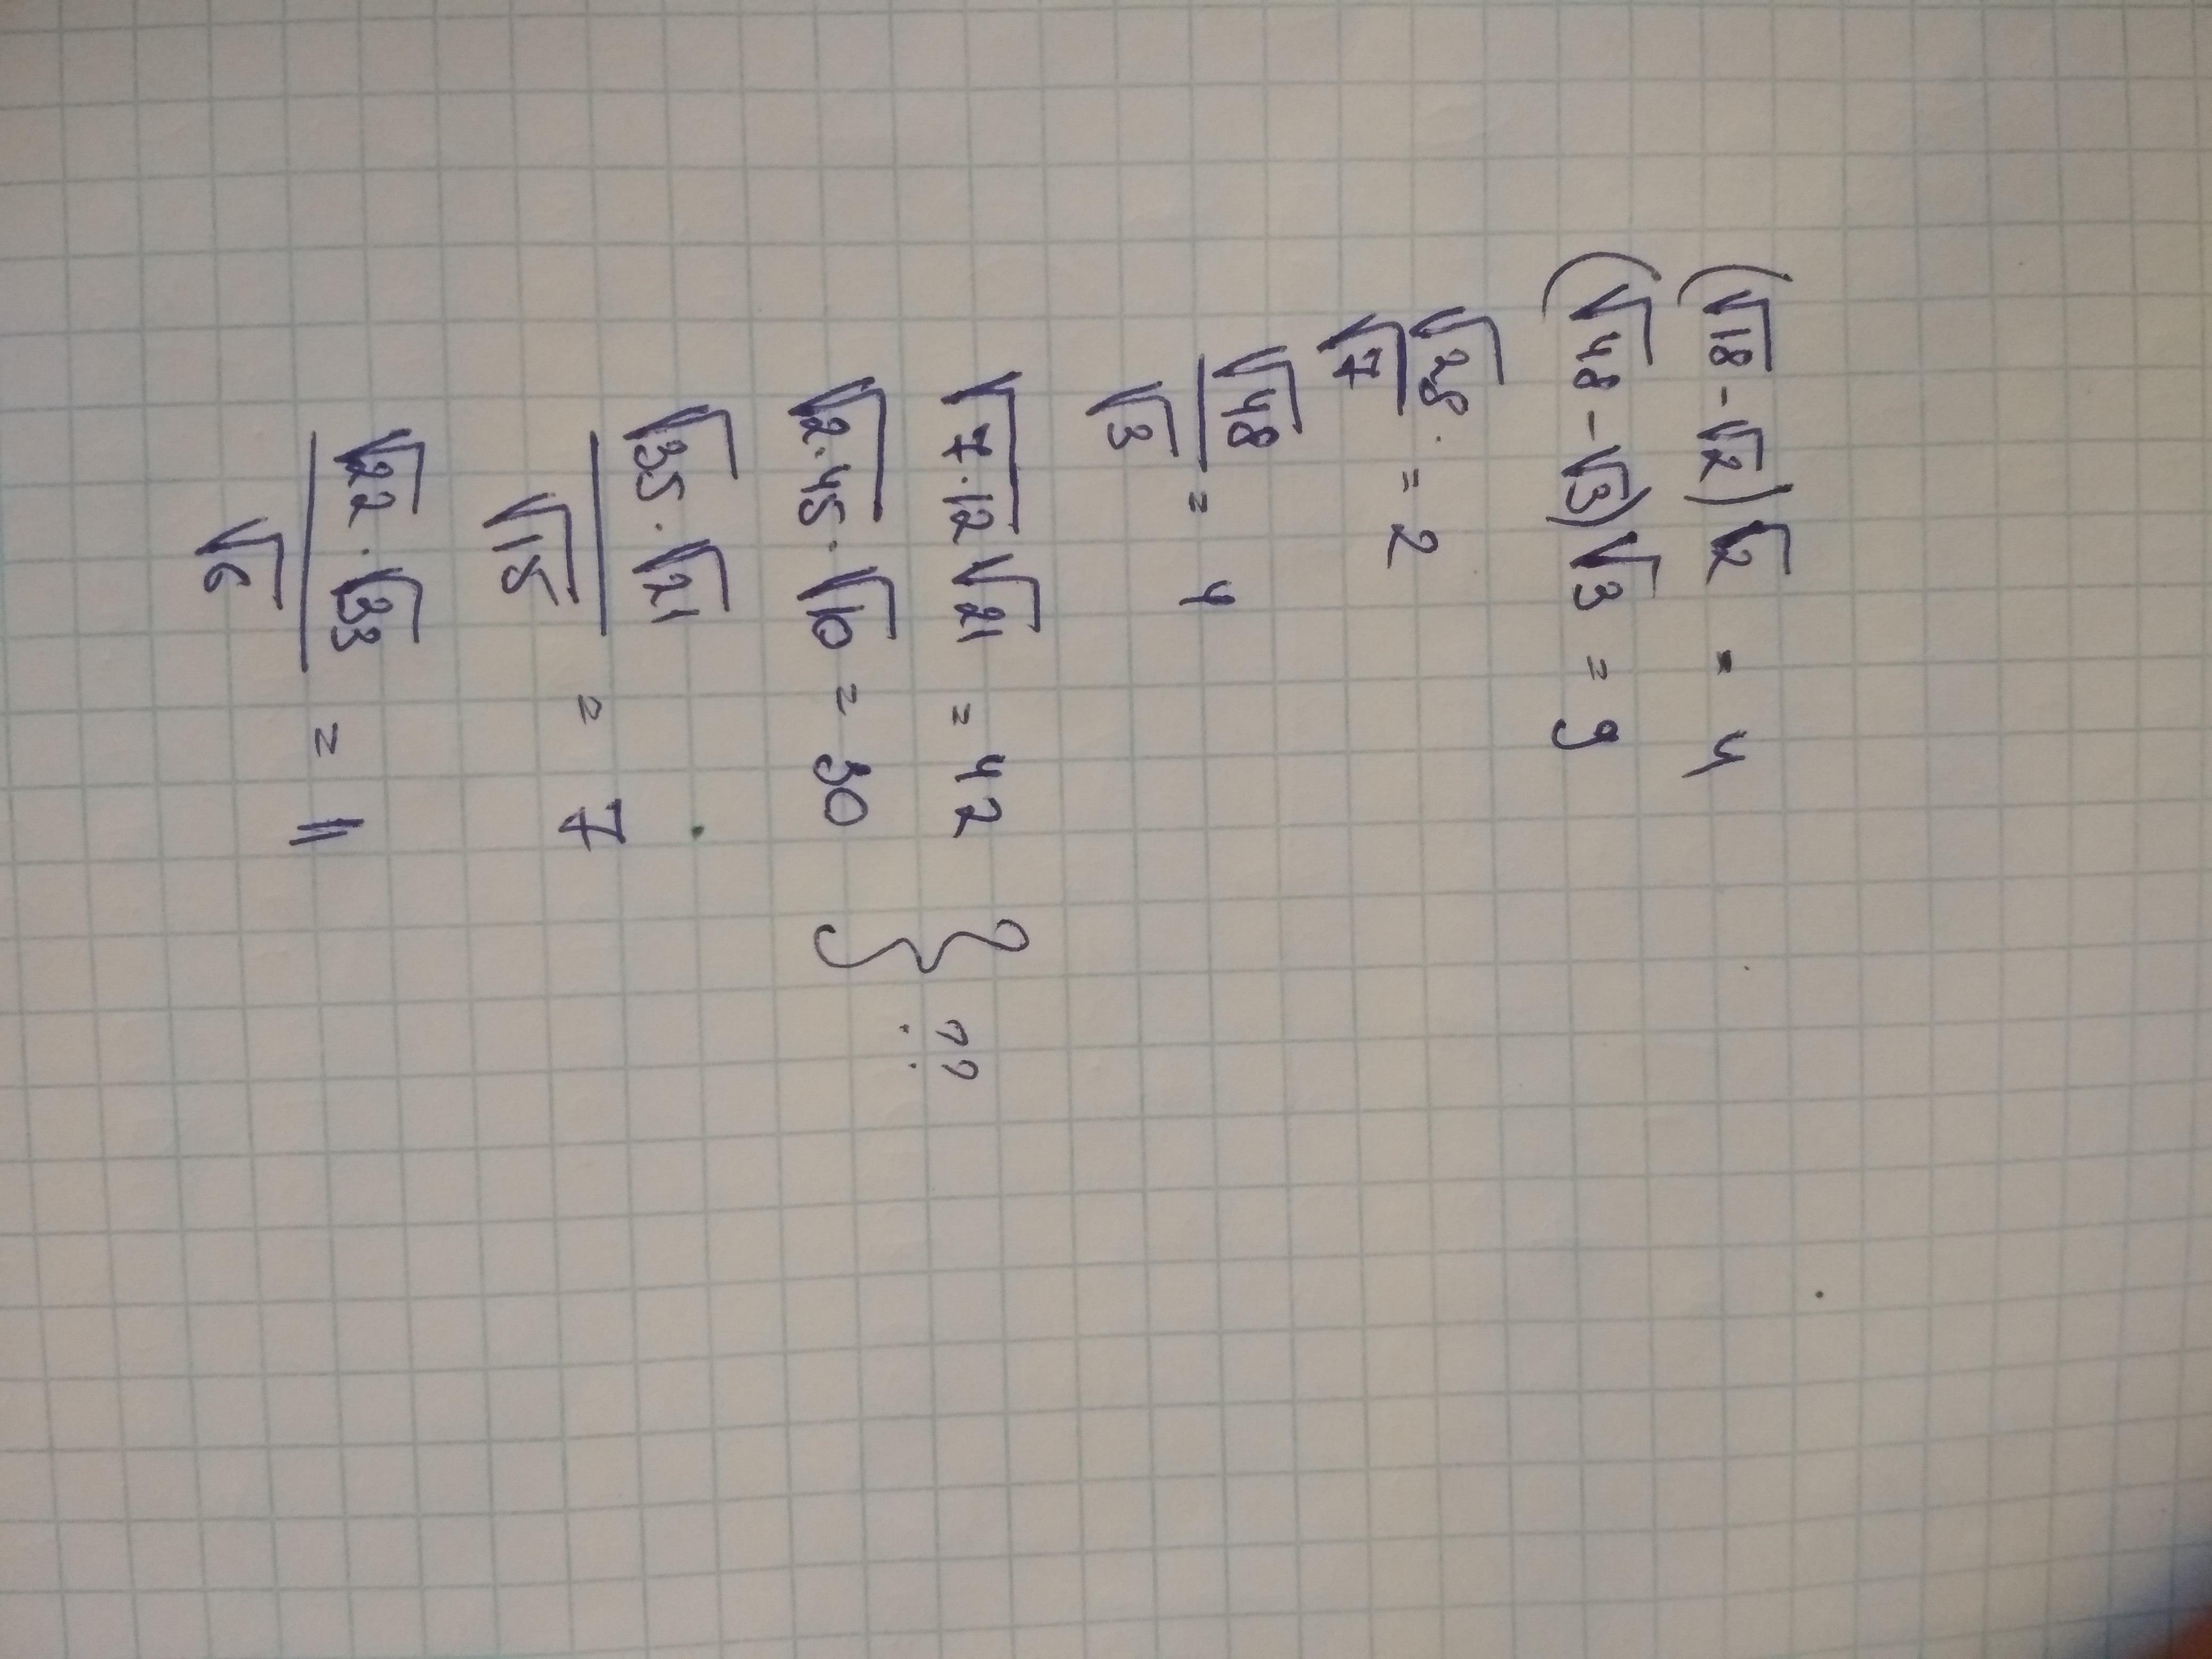 (√18 - √2)√2 = 4
(√48 - √3)√3 = 9
√28
= 2
√7
√48
= 4
√3
√7·12 √21 = 42
√2·45 · √10 = 30
} ??
√35 · √21
= 7
√15
√22 · √33
= 11
√6